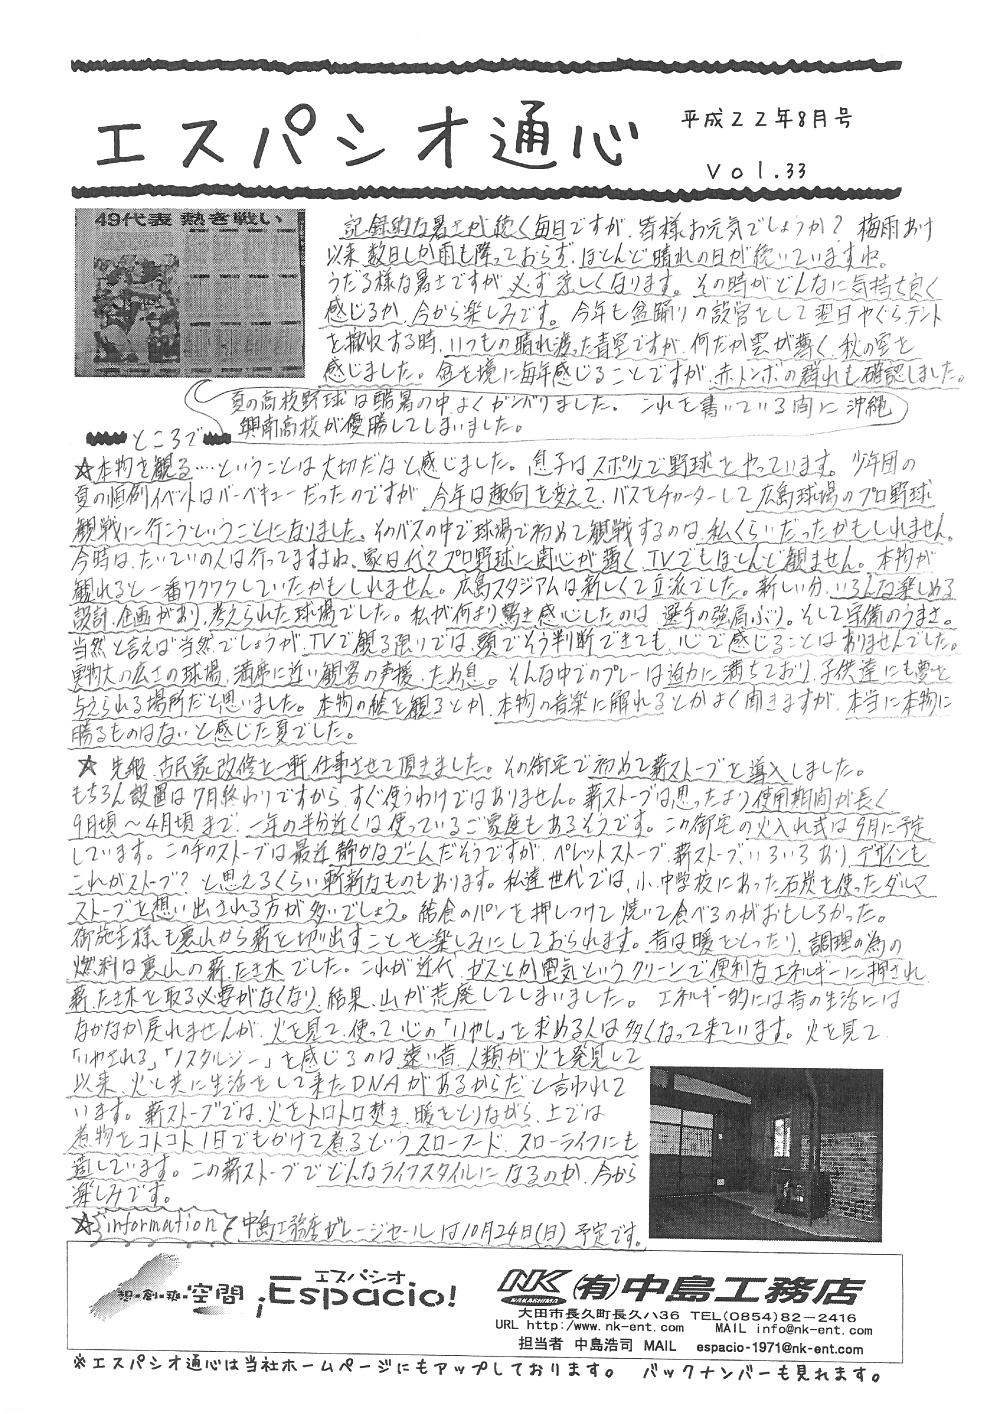 エスパシオ通心
平成22年8月号
Vol.33
49代表 熱き戦い
記録的な暑さが続く毎日ですが、皆様お元気でしょうか? 梅雨あけ
以来、数日しか雨も降っておらず、ほとんど晴れの日が続いていますね。
うだる様な暑さですが、必ず涼しくなります。その時がどんなに気持ち良く
感じるか、今から楽しみです。今年も盆踊りの設営をして翌日やぐら、テント
を撤収する時、いつもの晴れ渡った青空ですが、何だか雲が薄く、秋の空を
感じました。盆を境に毎年感じることですが、赤トンボの群れも確認しました。
夏の高校野球は酷暑の中、よくガンバリました。これを書いている間に沖縄
興南高校が優勝してしまいました。
ところで
☆本物を観る…ということは大切だなと感じました。息子はスポ少で野球をやっています。少年団の
夏の恒例イベントはバーベキューだったのですが、今年は趣向を変えて、バスをチャーターして広島球場のプロ野球
観戦に行こうということになりました。そのバスの中で球場で初めて観戦するのは、私くらいだったかもしれません。
今時は、たいていの人は行ってますよね。家は代々プロ野球に関心が薄く、TVでもほとんど観ません。本物が
観れると一番ワクワクしていたかもしれません。広島スタジアムは新しくて立派でした。新しい分、いろんな楽しめる
設計、企画があり、考えられた球場でした。私が何より驚き感心したのは、選手の強肩ぶり。そして守備のうまさ。
当然と言えば当然でしょうが、TVで観る限りでは、頭でそう判断できても、心で感じることはありませんでした。
実物大の広さの球場、満席に近い観客の声援、ため息。そんな中でのプレーは迫力に満ちており、子供達にも夢を
与えられる場所だと思いました。本物の絵を観るとか、本物の音楽に触れるとかよく聞きますが、本当に本物に
勝るものはないと感じた夏でした。
☆ 先般、古民家改修を一軒、仕事させて頂きました。その御宅で初めて薪ストーブを導入しました。
もちろん設置は7月終わりですから、すぐ使うわけではありません。薪ストーブは思ったより使用期間が長く
9月頃〜4月頃まで、一年の半分近くは使っているご家庭もあるそうです。この御宅の火入れ式は9月に予定
しています。この手のストーブは最近静かなブームだそうですが、ペレットストーブ、薪ストーブ、いろいろあり、デザインも
これがストーブ? と思えるくらい斬新なものもあります。私達世代では、小、中学校にあった石炭を使ったダルマ
ストーブを想い出される方が多いでしょう。給食のパンを押しつけて焼いて食べるのがおもしろかった。
御施主様も裏山から薪を切り出すことを楽しみにしておられます。昔は暖をとったり、調理の為の
燃料は裏山の薪、たき木でした。これが近代、ガスとか電気というクリーンで便利なエネルギーに押され
薪、たき木を取る必要がなくなり、結果、山が荒廃してしまいました。エネルギー的には昔の生活には
なかなか戻れませんが、火を見て、使って心の「いやし」を求める人は多くなって来ています。火を見て、
「いやされる」「ノスタルジー」を感じるのは遠い昔、人類が火を発見して
以来、火と共に生活をして来たDNAがあるからだと言われて
います。薪ストーブでは、火をトロトロ焚き、暖をとりながら、上では
煮物をコトコト1日でもかけて煮るというスローフード、スローライフにも
適しています。この薪ストーブでどんなライフスタイルになるのか、今から
楽しみです。
☆information 中島工務店ガレージセールは10月24日(日)予定です。
想・創・築・空間
エスパシオ
¡Espacio!
NK
NAKASHIMA
(有)中島工務店
大田市長久町長久ハ36 TEL(0854)82−2416
URL http:/www.nk-ent.com/ MAIL info@nk-ent.com
担当者 中島浩司 MAIL espacio-1971@nk-ent.com
※エスパシオ通心は当社ホームページにもアップしております。 バックナンバーも見れます。